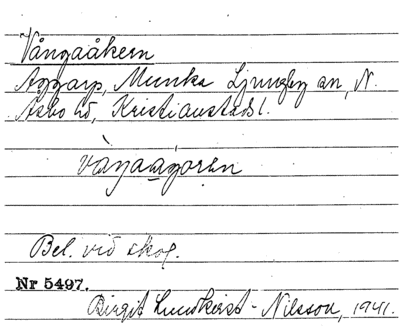 Vångaåkern
Aggarp, Munka Ljungby sn, N.
Åsbo hd, Kristianstads l.
Bel. vid skog.
Nr 5497.
Birgit Lundkvist-Nilsson, 1941.